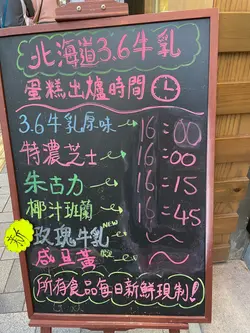 北海道3.6牛乳
蛋糕出爐時間
3.6牛乳原味 → 16:00
特濃芝士 → 16:00
朱古力 → 16:15
椰汁班蘭 → 16:45
新 玫瑰牛乳 NEW → ~
咸旦黃 → ~
所有食品每日新鮮現制!